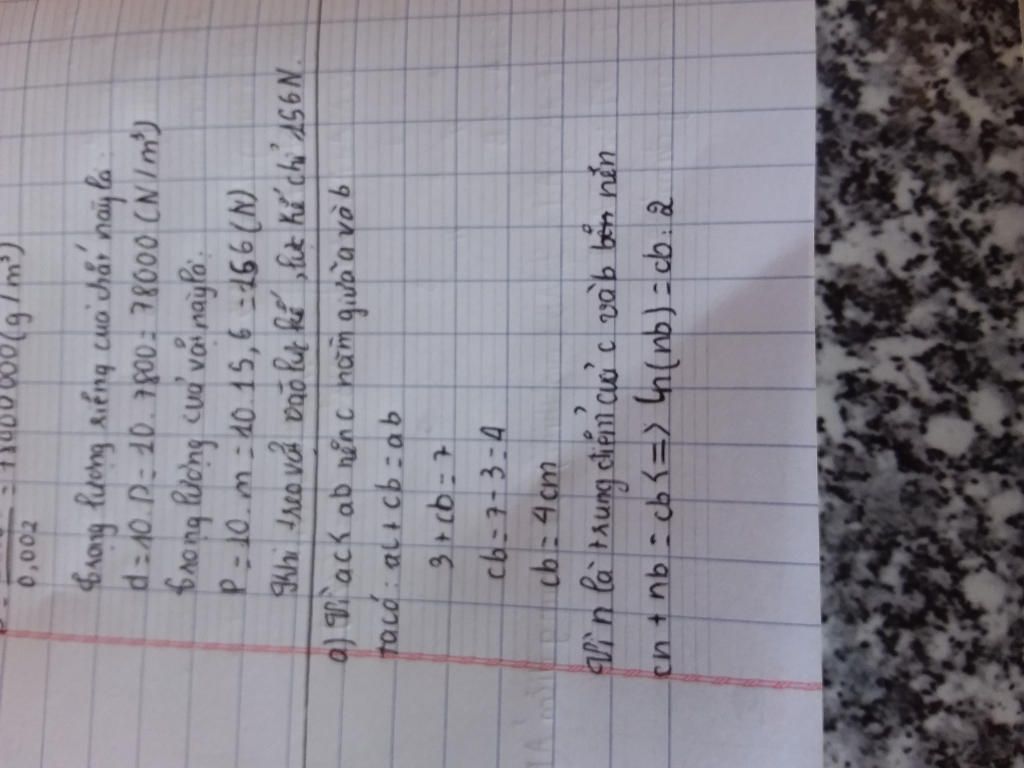 = 7800000(g/m³)
0,002
trọng lượng riêng của chất này là:
d=10.D=10.7800=78000(N/m³)
trọng lượng của vật này là:
P=10.m=10.15,6=156(N)
Khi treo vật vào lực kế, lực kế chỉ 156N.
a) Vì ac<ab nên c nằm giữa a và b
ta có: ac+cb=ab
3+cb=7
cb=7-3=4
cb=4cm
Vì n là trung điểm của c và b nên
cn+nb=cb<=> (nb)=cb:2